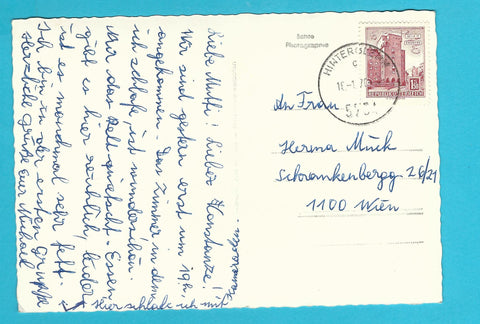 Liebe Mutti! Liebes Konstanze!
Wir sind gestern erst um 19h
angekommen. Das Zimmer in dem
ich schlafe ist wunderschön.
Essen
gibt es hier reichlich, leider
ist es manchmal sehr fett.
Ich bin in der ersten Gruppe
Herzliche Grüße Euer Michael
Hier schlafe ich mit Kameraden.
Echte
Photographie
HINTER
REPUBLIK ÖSTERREICH
An Frau
Herma Muck
Schrankenbergg 26/21
1100 Wien